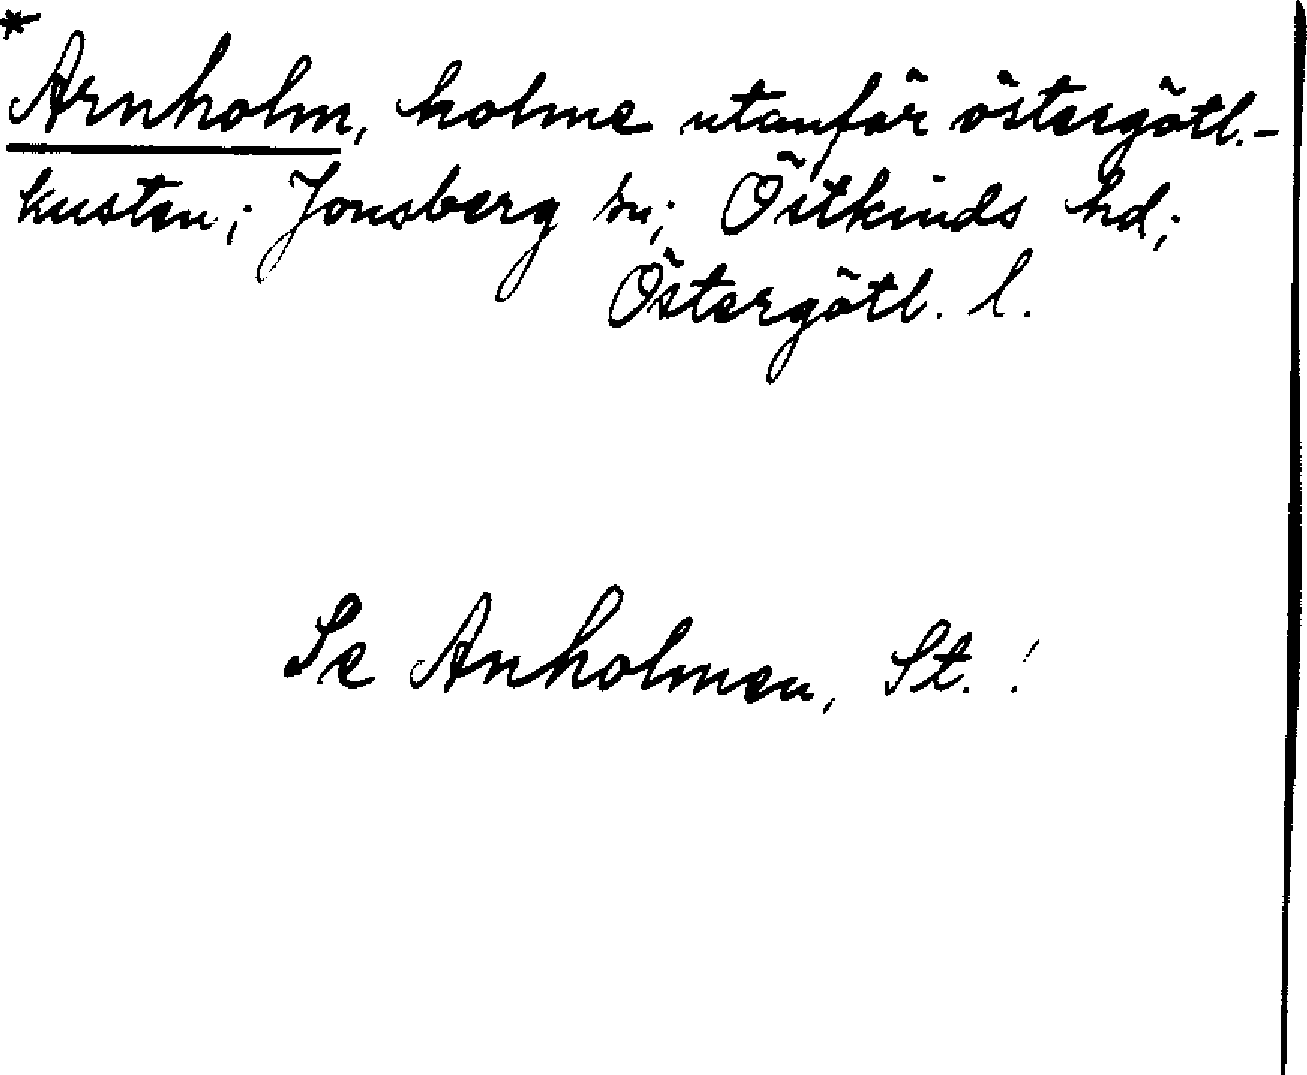 *
Arnholm, holme utanför östergötl.-
kusten; Jonsberg sn; Östkinds hd;
Östergötl. l.
Se Anholmen, St.!